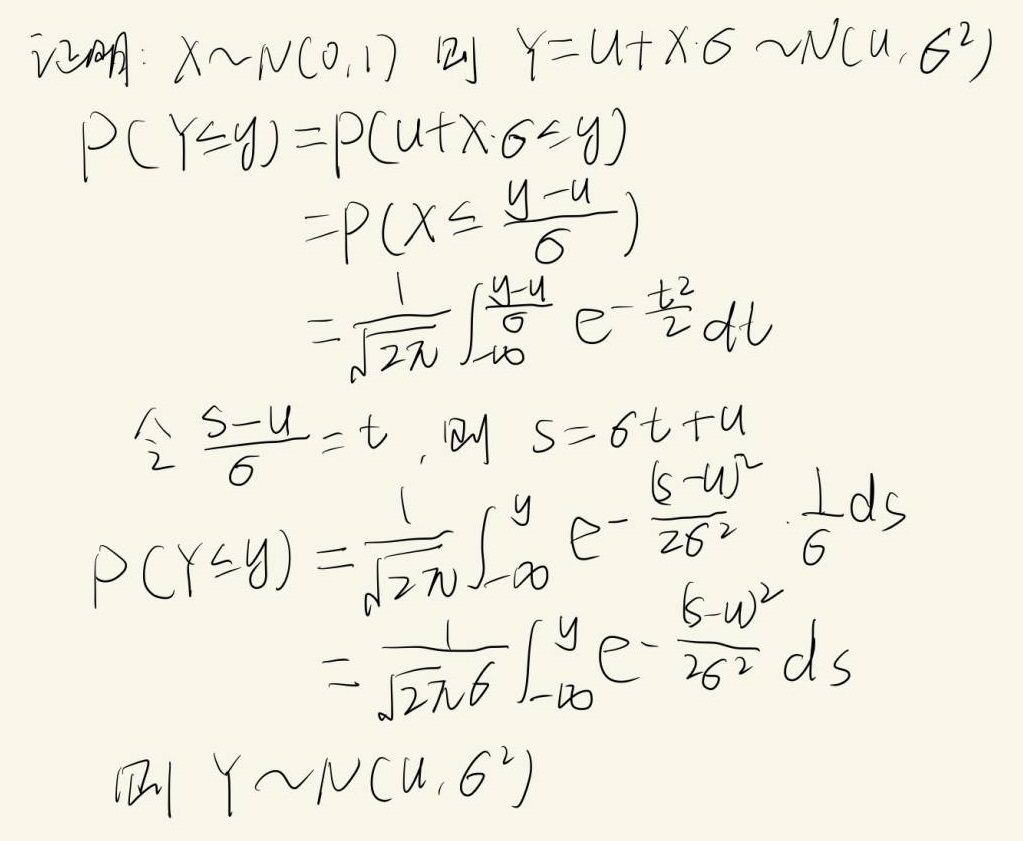 证明: X~N(0,1) 则 Y=u+X·σ ~N(u,σ²)
P(Y≤y)=P(u+X·σ≤y)
=P(X≤ \frac{y-u}{σ})
=\frac{1}{\sqrt{2π}} \int_{-∞}^{\frac{y-u}{σ}} e^{-\frac{t^2}{2}} dt
令 \frac{s-u}{σ}=t, 则 s=σt+u
P(Y≤y) =\frac{1}{\sqrt{2π}} \int_{-∞}^{y} e^{-\frac{(s-u)^2}{2σ^2}} · \frac{1}{σ} ds
=\frac{1}{\sqrt{2π}σ} \int_{-∞}^{y} e^{-\frac{(s-u)^2}{2σ^2}} ds
则 Y~N(u,σ²)